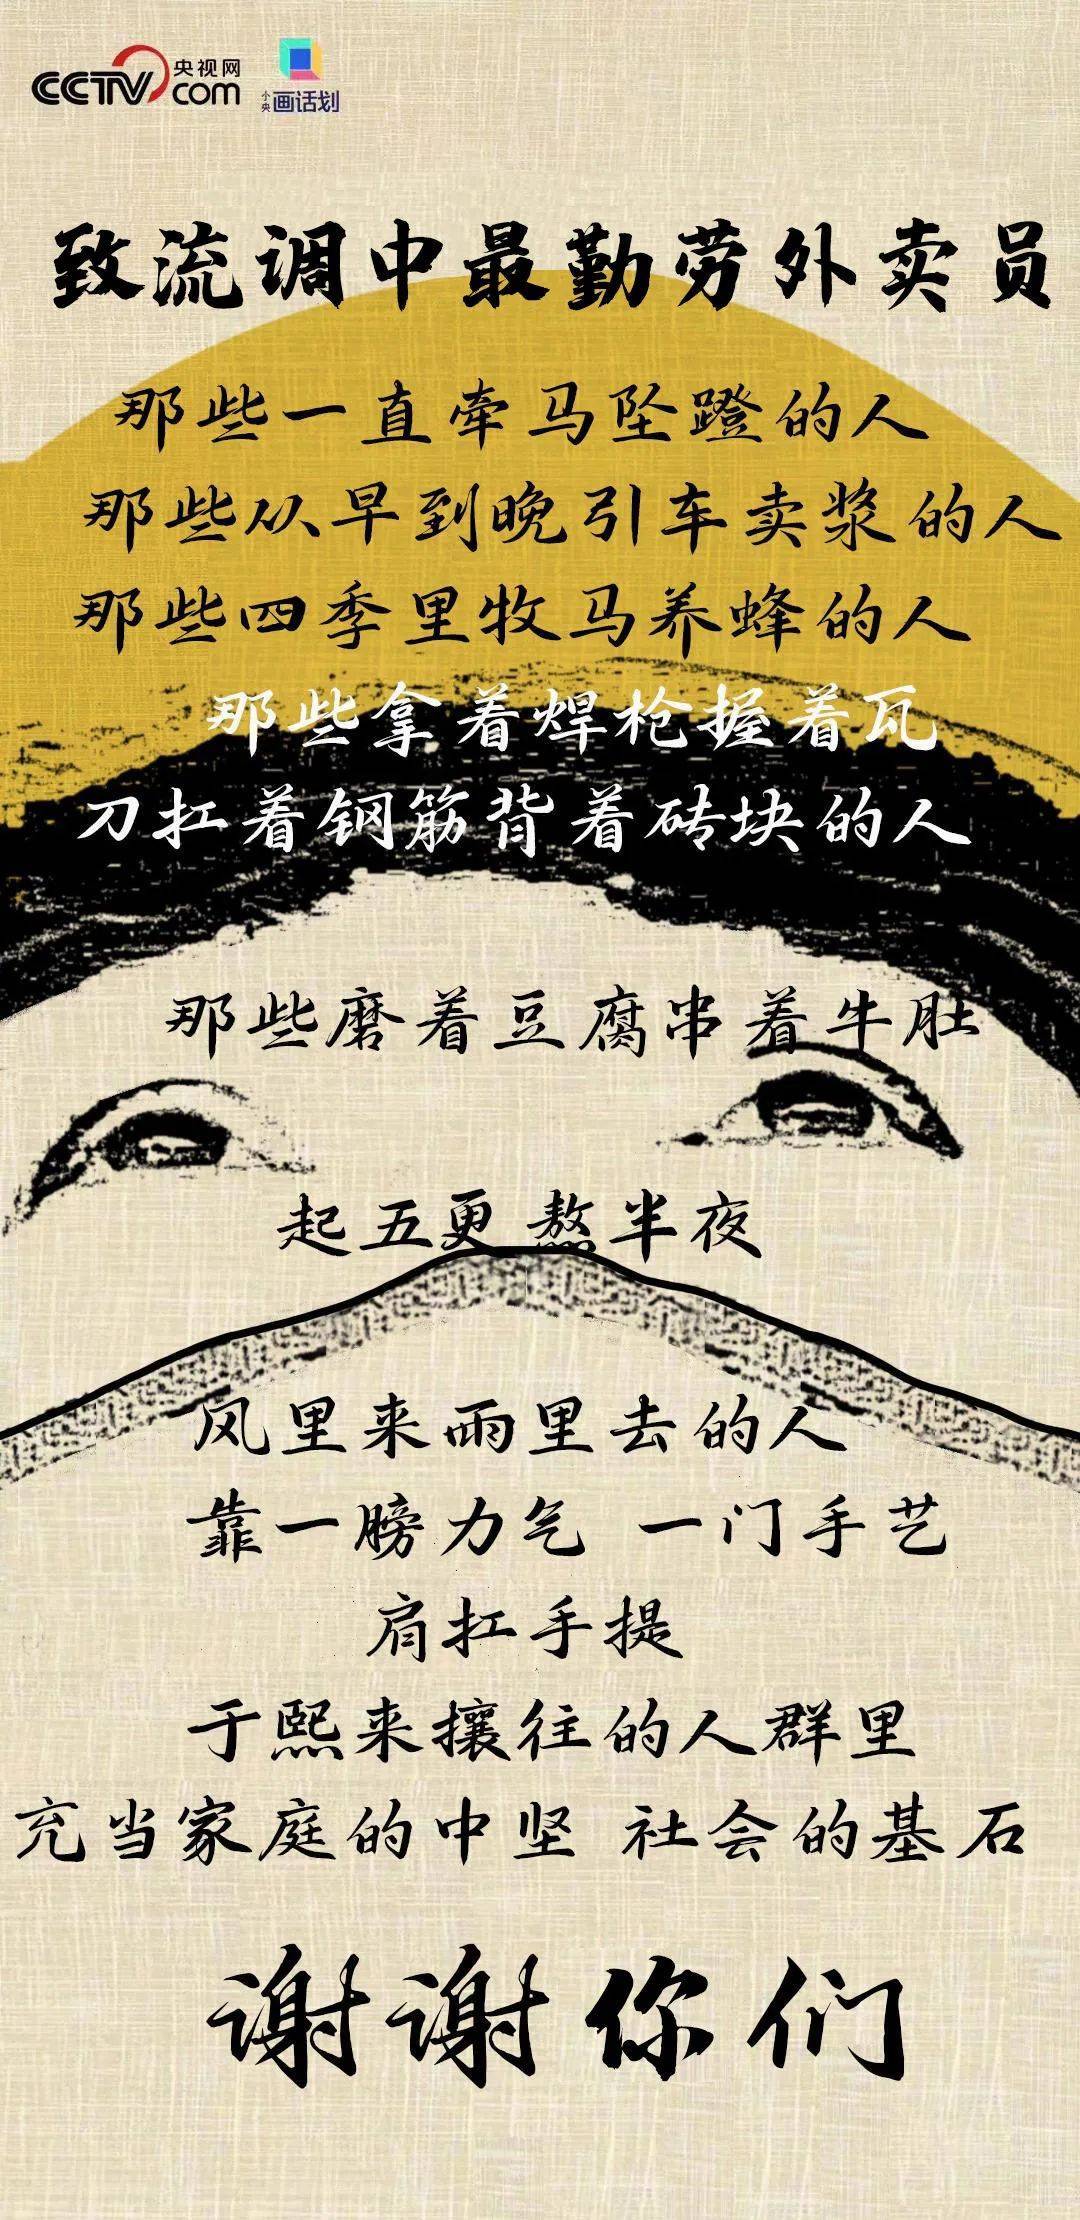 CCTV央视网
com
小央画话划
致流调中最勤劳外卖员
那些一直牵马坠蹬的人
那些从早到晚引车卖浆的人
那些四季里牧马养蜂的人
那些拿着焊枪握着瓦
刀扛着钢筋背着砖块的人
那些磨着豆腐串着牛肚
起五更 熬半夜
风里来雨里去的人
靠一膀力气 一门手艺
肩扛手提
于熙来攘往的人群里
充当家庭的中坚 社会的基石
谢谢你们